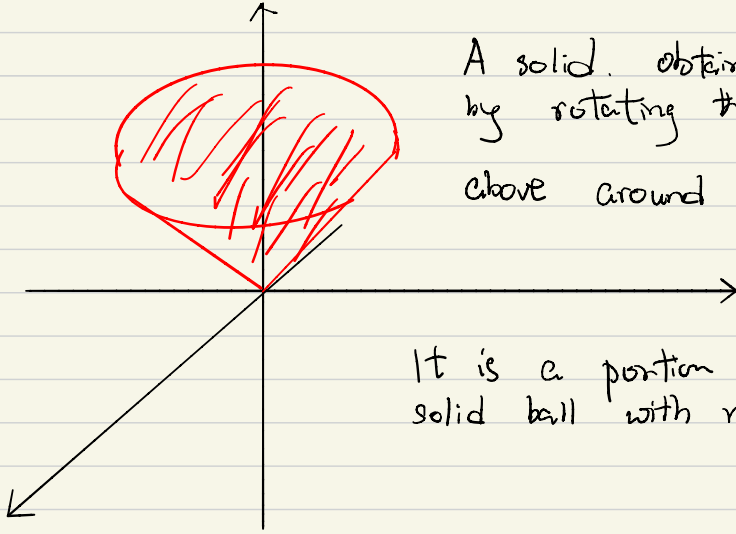 A solid. obtain
by rotating th
above around
It is a portion
solid ball with r